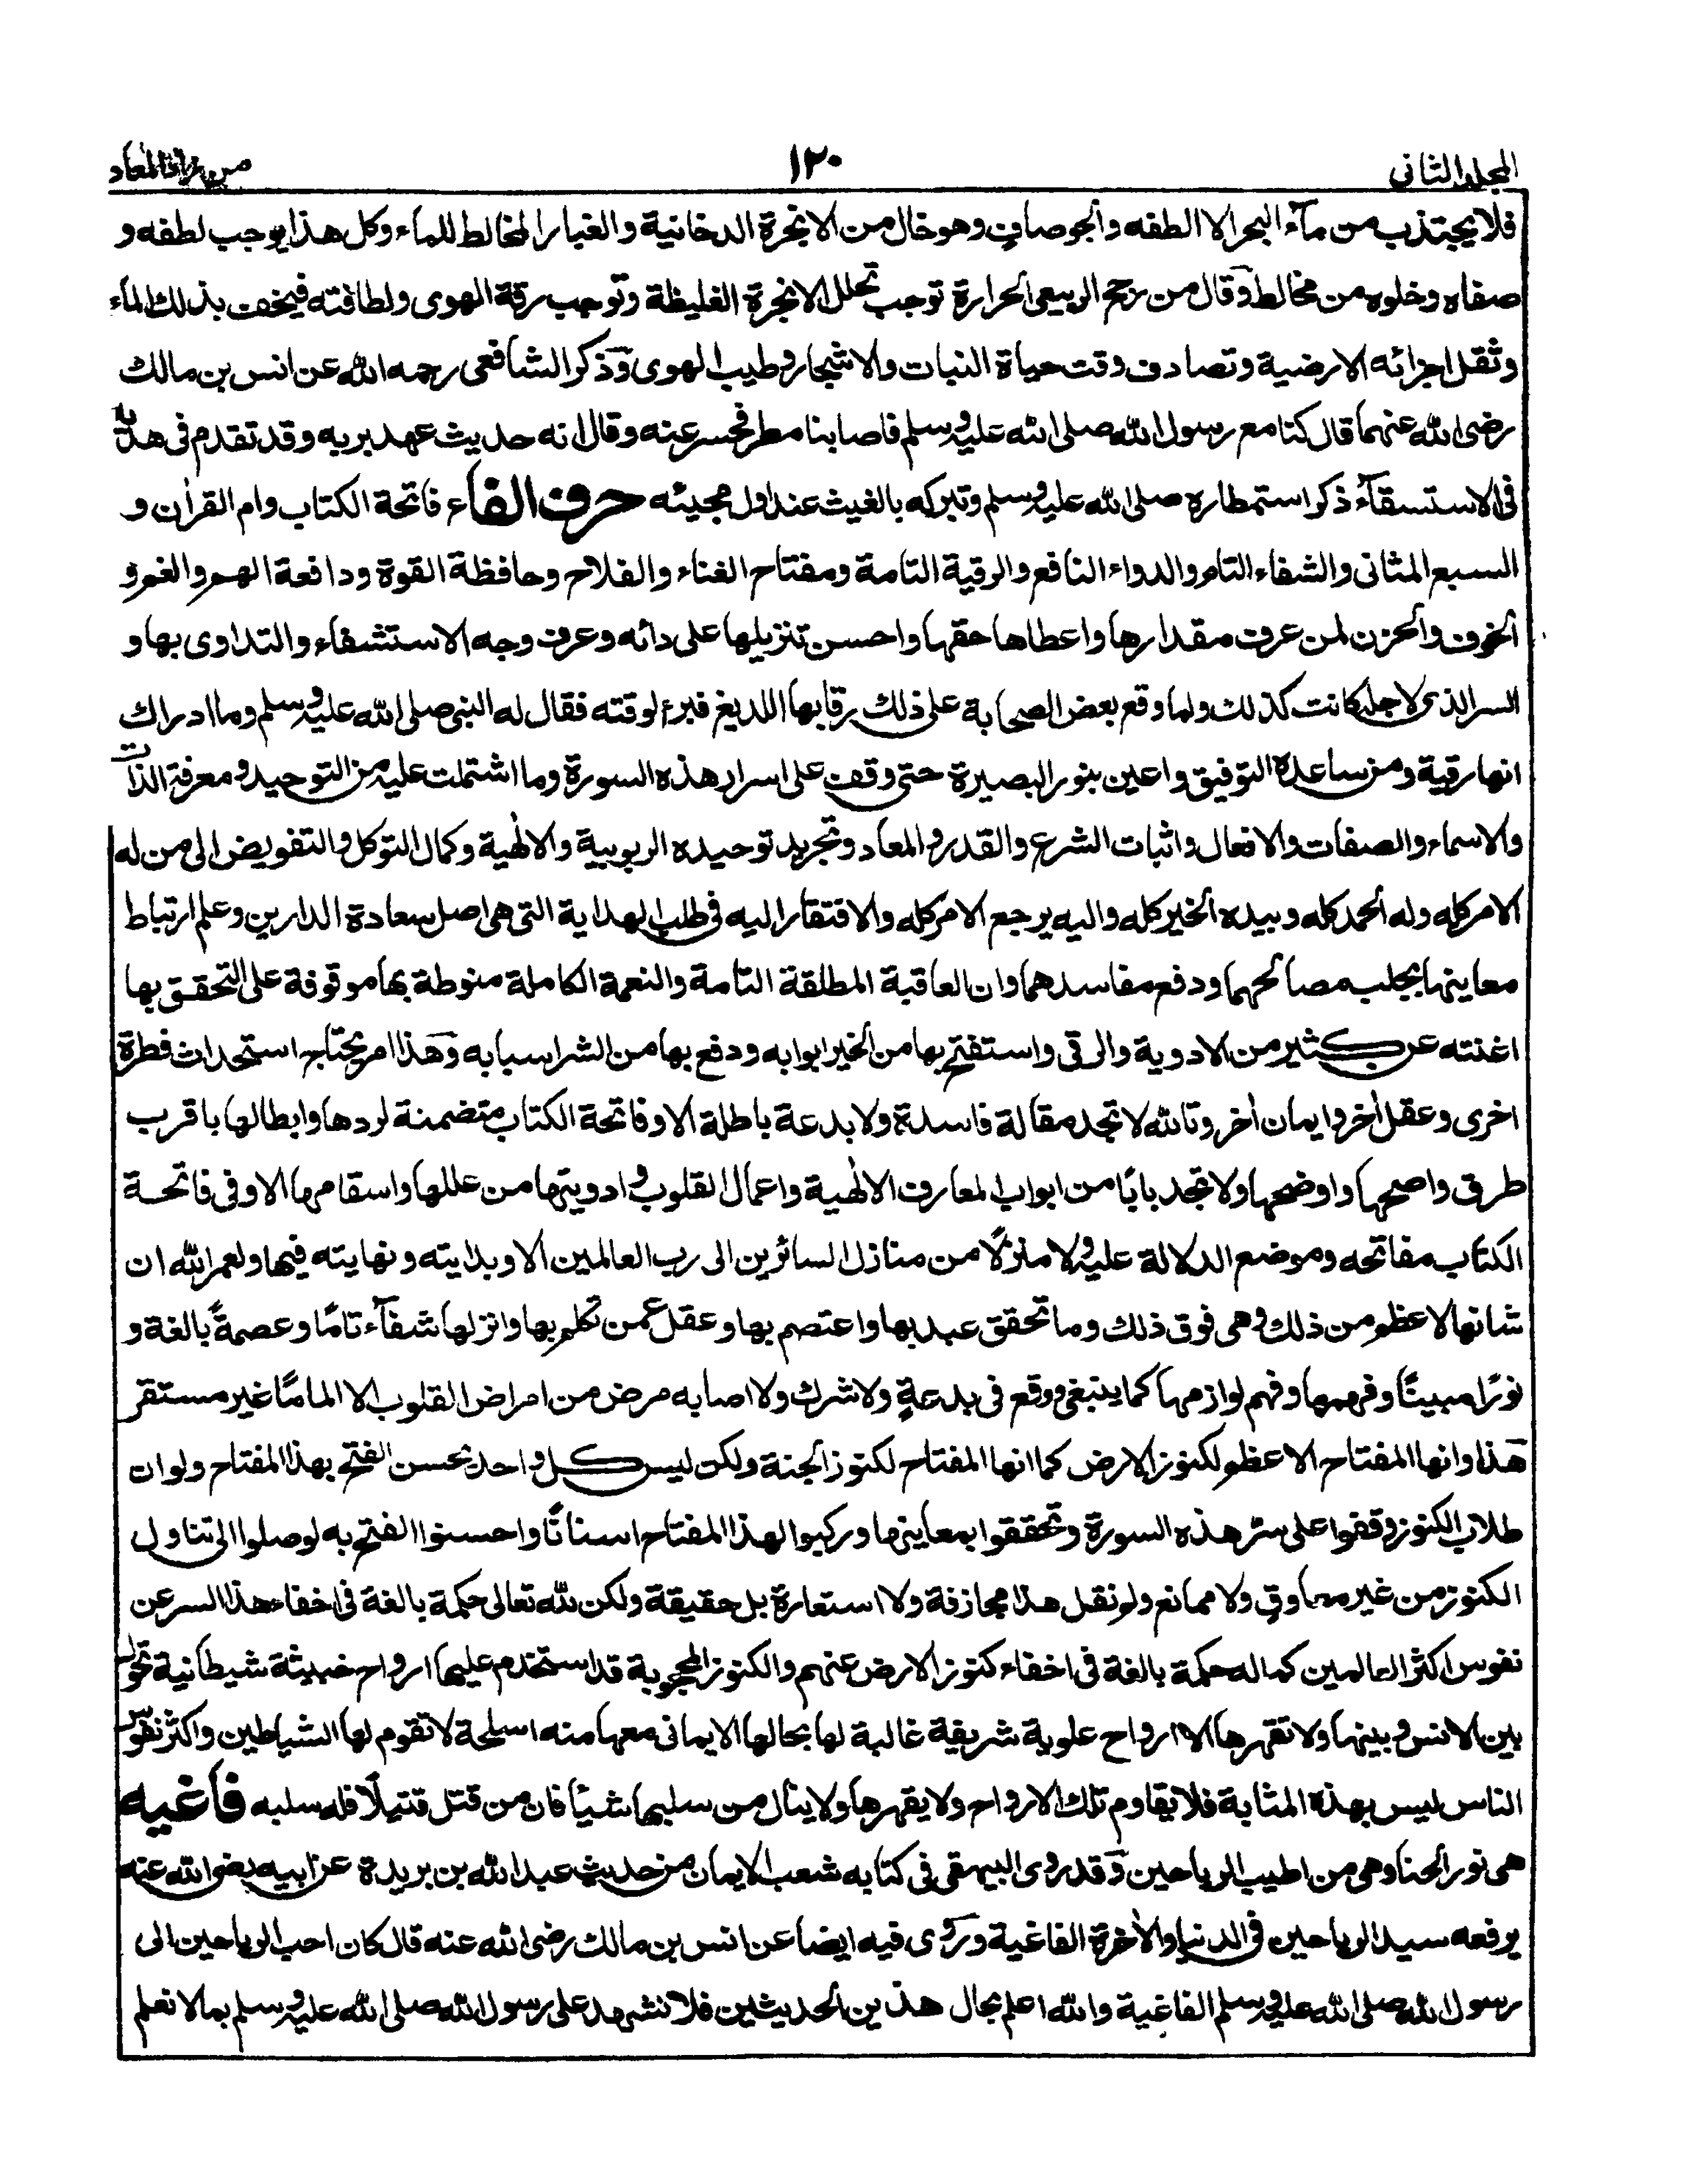 المجلد الثاني
١٢٠
من زاد المعاد
فلا يجتذب من مآء البحر الا الطفه والجو صافٍ وهو خال من الابخرة الدخانية والغبار المخالط للماء وكل هذا يوجب لطفه و
صفاه وخلوه من مخالط وقال من رجح الربيعى الحرارة توجب تحلل الابخرة الغليظة وتوجب رقة الهوى ولطافته فيخف بذلك الماء
وثقل اجزائه الارضية وتصادف وقت حياة النبات والاشجار وطيب الهوى وذكر الشافعى رحمه الله عن انس بن مالك
رضى الله عنهما قال كنا مع رسول الله صلى الله عليه وسلم فاصابنا مطر فحسر عنه وقال انه حديث عهد بربه وقد تقدم فى هديه
فى الاستسقآء ذكر استمطاره صلى الله عليه وسلم وتبركه بالغيث عند اول مجيئه حرف الفاء فاتحة الكتاب وام القرآن و
السبع المثانى والشفاء التام والدواء النافع والرقية التامة ومفتاح الغناء والفلاح وحافظة القوة ودافعة الهم والغم و
الخوف والحزن لمن عرف مقدارها واعطاها حقها واحسن تنزيلها على دائه وعرف وجه الاستشفاء والتداوى بها و
السر الذى لاجله كانت كذلك ولما وقع بعض الصحابة على ذلك رقا بها اللديغ فبرء لوقته فقال له النبى صلى الله عليه وسلم وما ادراك
انها رقية ومن ساعده التوفيق واعين بنور البصيرة حتى وقف على اسرار هذه السورة وما اشتملت عليه من التوحيد ومعرفة الذات
والاسماء والصفات والافعال واثبات الشرع والقدر والمعاد وتجريد توحيده الربوبية والالٰهية وكمال التوكل والتفويض الى من له
الامر كله وله الحمد كله وبيده الخير كله واليه يرجع الامر كله والافتقار اليه فى طلب الهداية التى هى اصل سعادة الدارين وعلم ارتباط
معاينها بجلب مصالحهما ودفع مفاسدهما وان العاقبة المطلقة التامة والنعمة الكاملة منوطة بها موقوفة على التحقق بها
اغنته عن كثير من الادوية والرقى واستفتح بها من الخير ابوابه ودفع بها من الشر اسبابه وهذا امر يحتاج استحداث فطرة
اخرى وعقل أخر وايمان أخر وتالله لا تجد مقالة فاسدة ولا بدعة باطلة الا وفاتحة الكتاب متضمنة لردها وابطالها باقرب
طرق واصحها واوضحها ولا تجد بابًا من ابواب المعارف الالٰهية واعمال القلوب وادويتها من عللها واسقامها الا وفى فاتحة
الكتاب مفاتحه وموضع الدلالة عليه ولا منزلًا من منازل السائرين الى رب العالمين الا وبدايته ونهايته فيها ولعمر الله ان
شانها لاعظم من ذلك وهى فوق ذلك وما تحقق عبد بها واعتصم بها وعقل عمن تكلم بها وانزلها شفآء تامًا وعصمةً بالغة و
نورًا مبينًا وفهمها وفهم لوازمها كما ينبغى ووقع فى بدعةٍ ولا شرك ولا اصابه مرض من امراض القلوب الا المامًا غير مستقر
هذا وانها المفتاح الاعظم لكنوز الارض كما انها المفتاح لكنوز الجنة ولكن ليس كل واحد يحسن الفتح بهذا المفتاح ولو ان
طلاب الكنوز وقفوا على سر هذه السورة وتحققوا بمعاينها وركبوا لهذا المفتاح اسنانًا واحسنوا الفتح به لوصلوا الى تناول
الكنوز من غير معاوق ولا ممانع ولم نقل هذا مجازفة ولا استعارة بل حقيقة ولكن لله تعالى حكمة بالغة فى اخفاء هذا السر عن
نفوس اكثر العالمين كما له حكمة بالغة فى اخفاء كنوز الارض عنهم والكنوز المحجوبة قد استخدم عليها ارواح خبيثة شيطانية تحول
بين الانس وبينها ولا تقهرها الا ارواح علوية شريفة غالبة لها بحالها الايمانى معها منه اسلحة لا تقوم لها الشياطين واكثر نفوس
الناس ليس بهذه المثابة فلا يقاوم تلك الارواح ولا يقهرها ولا ينال من سلبها شيئا فان من قتل قتيلًا فله سلبه فاغيه
هى نور الحنا وهى من اطيب الرياحين وقد روى البيهقى فى كتابه شعب الايمان من حديث عبد الله بن بريدة عن ابيه رضى الله عنه
يرفعه سيد الرياحين فى الدنيا والأخرة الفاغية وروى فيه ايضا عن انس بن مالك رضى الله عنه قال كان احب الرياحين الى
رسول الله صلى الله عليه وسلم الفاغية والله اعلم بحال هذين الحديثين فلا نشهد على رسول الله صلى الله عليه وسلم بما لا نعلم